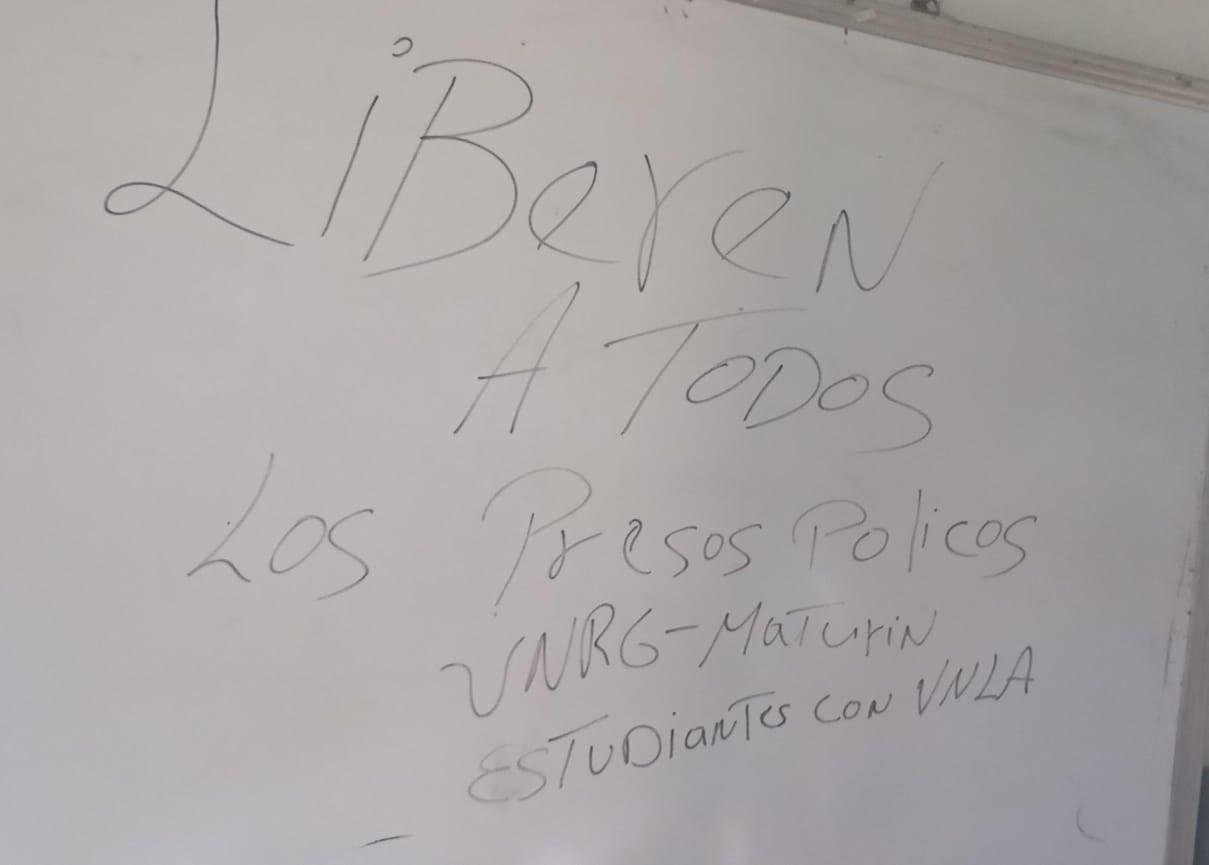 LiBereN
A TODOS
Los Presos Policos
UNRG-MaTuriN
ESTUDiaNTes CON VNLA